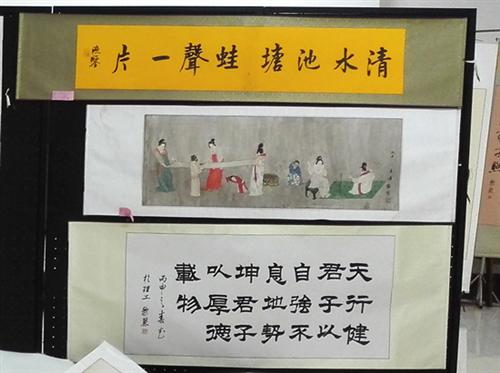 清水池塘蛙聲一片
天行健
君子以
自強不
息地勢
坤君子
㕥厚德
載物
丙申之春
於理工